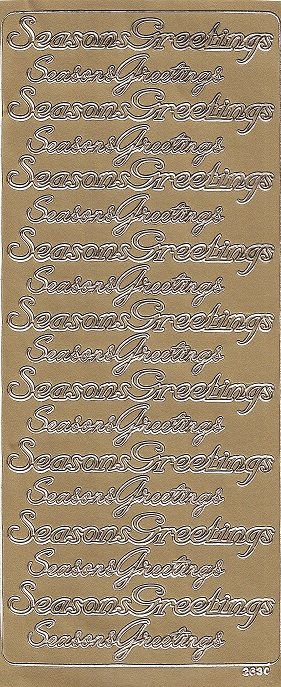 Seasons Greetings
Seasons Greetings
Seasons Greetings
Seasons Greetings
Seasons Greetings
Seasons Greetings
Seasons Greetings
Seasons Greetings
Seasons Greetings
Seasons Greetings
Seasons Greetings
Seasons Greetings
Seasons Greetings
Seasons Greetings
Seasons Greetings
Seasons Greetings
Seasons Greetings
Seasons Greetings